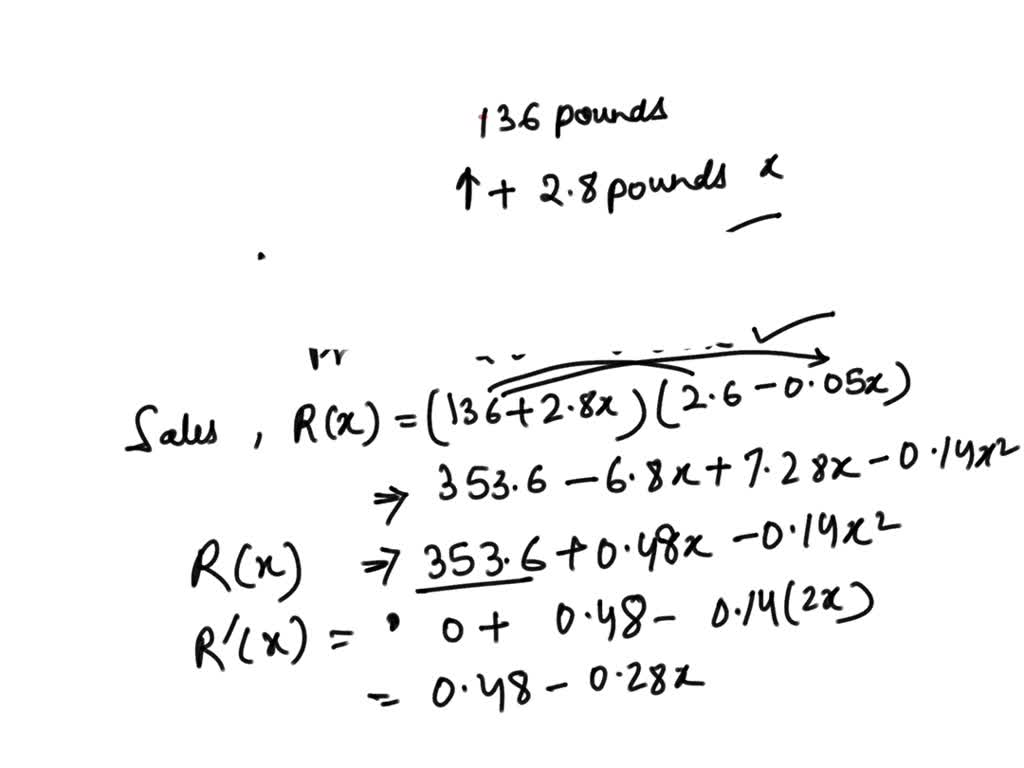 136 pounds
↑ + 2.8 pounds x
Sales , R(x) = (136 + 2.8x) (2.6 - 0.05x)
⇒ 353.6 - 6.8x + 7.28x - 0.14x²
R(x) ⇒ 353.6 + 0.48x - 0.14x²
R'(x) = 0 + 0.48 - 0.14(2x)
= 0.48 - 0.28x